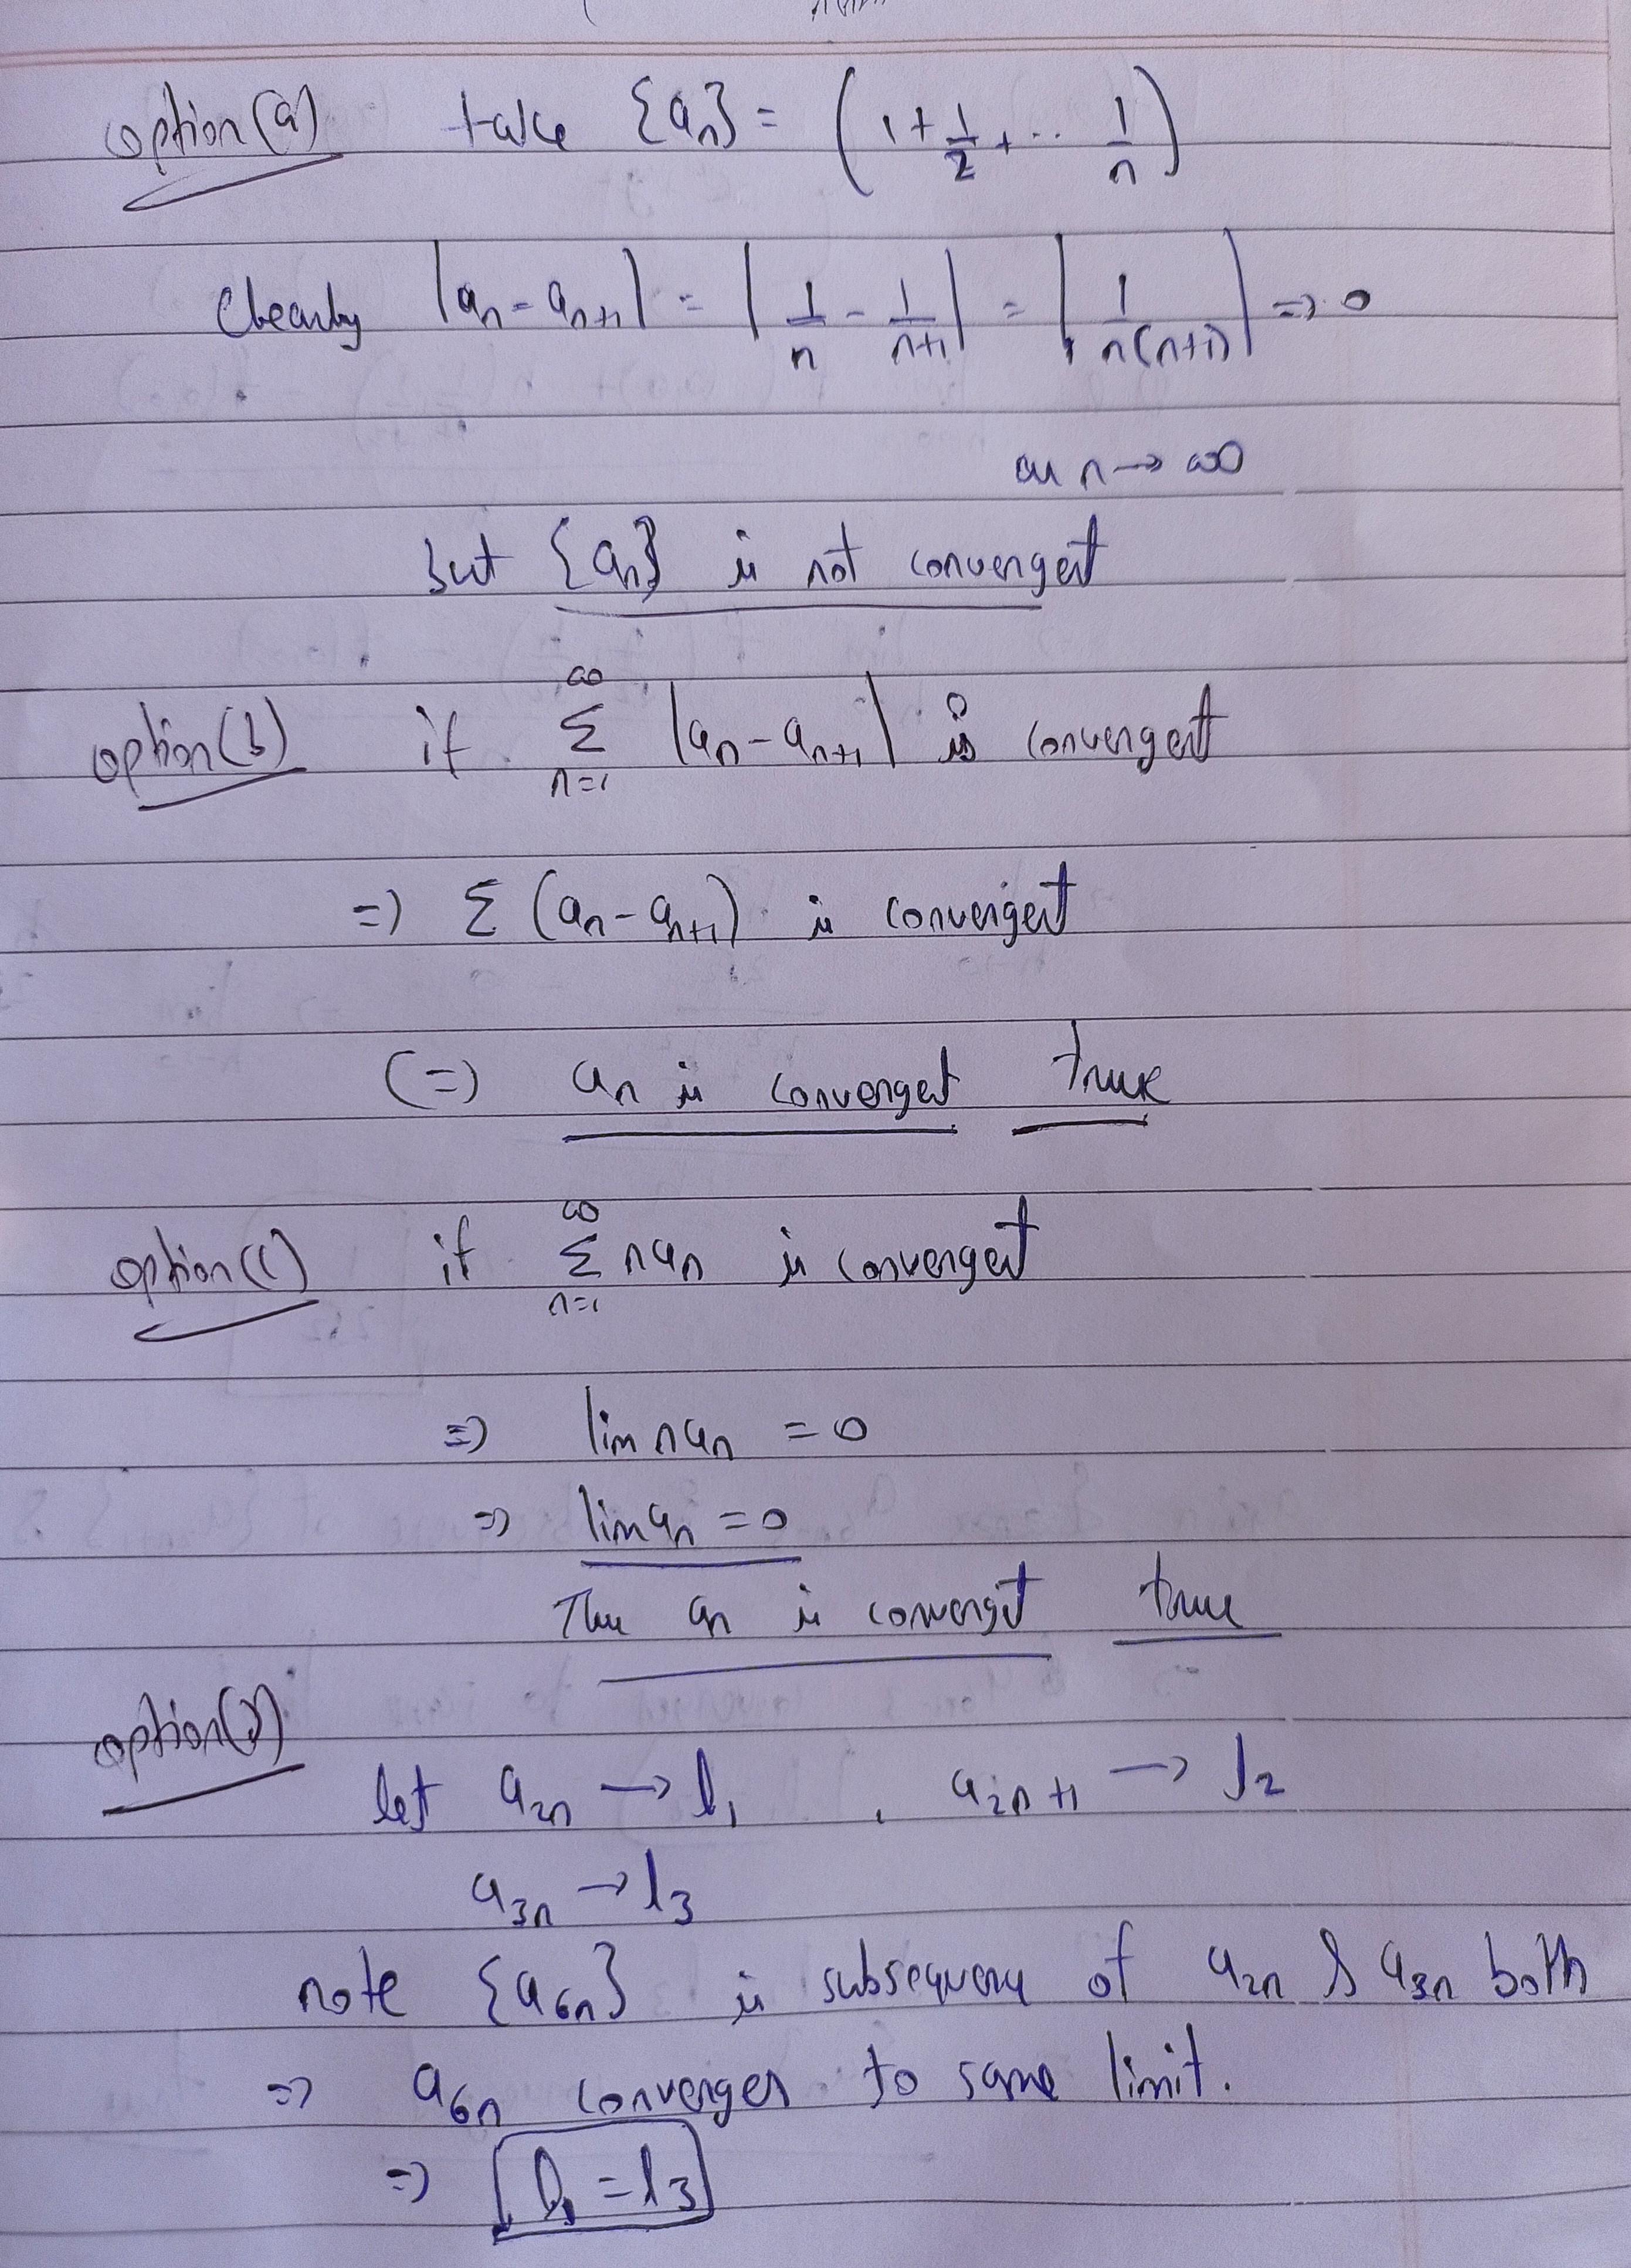 option(a) take {aₙ} = (1 + 1/2 + ... 1/n)
Clearly |aₙ - aₙ₊₁| = |1/n - 1/(n+1)| = |1/(n(n+1))| => 0
as n → ∞
but {aₙ} is not convergent
option(b) if ∑_{n=1}^{∞} |aₙ - aₙ₊₁| is convergent
=> ∑ (aₙ - aₙ₊₁) is convergent
(=) aₙ is convergent true
option(c) if ∑_{n=1}^{∞} naₙ is convergent
=> lim naₙ = 0
=> lim aₙ = 0
Thus aₙ is convergent true
option(d)
let a₂ₙ → l₁ , a₂ₙ₊₁ → l₂
a₃ₙ → l₃
note {a₆ₙ} is subsequence of a₂ₙ & a₃ₙ both
=> a₆ₙ converges to same limit.
=> l₁ = l₃